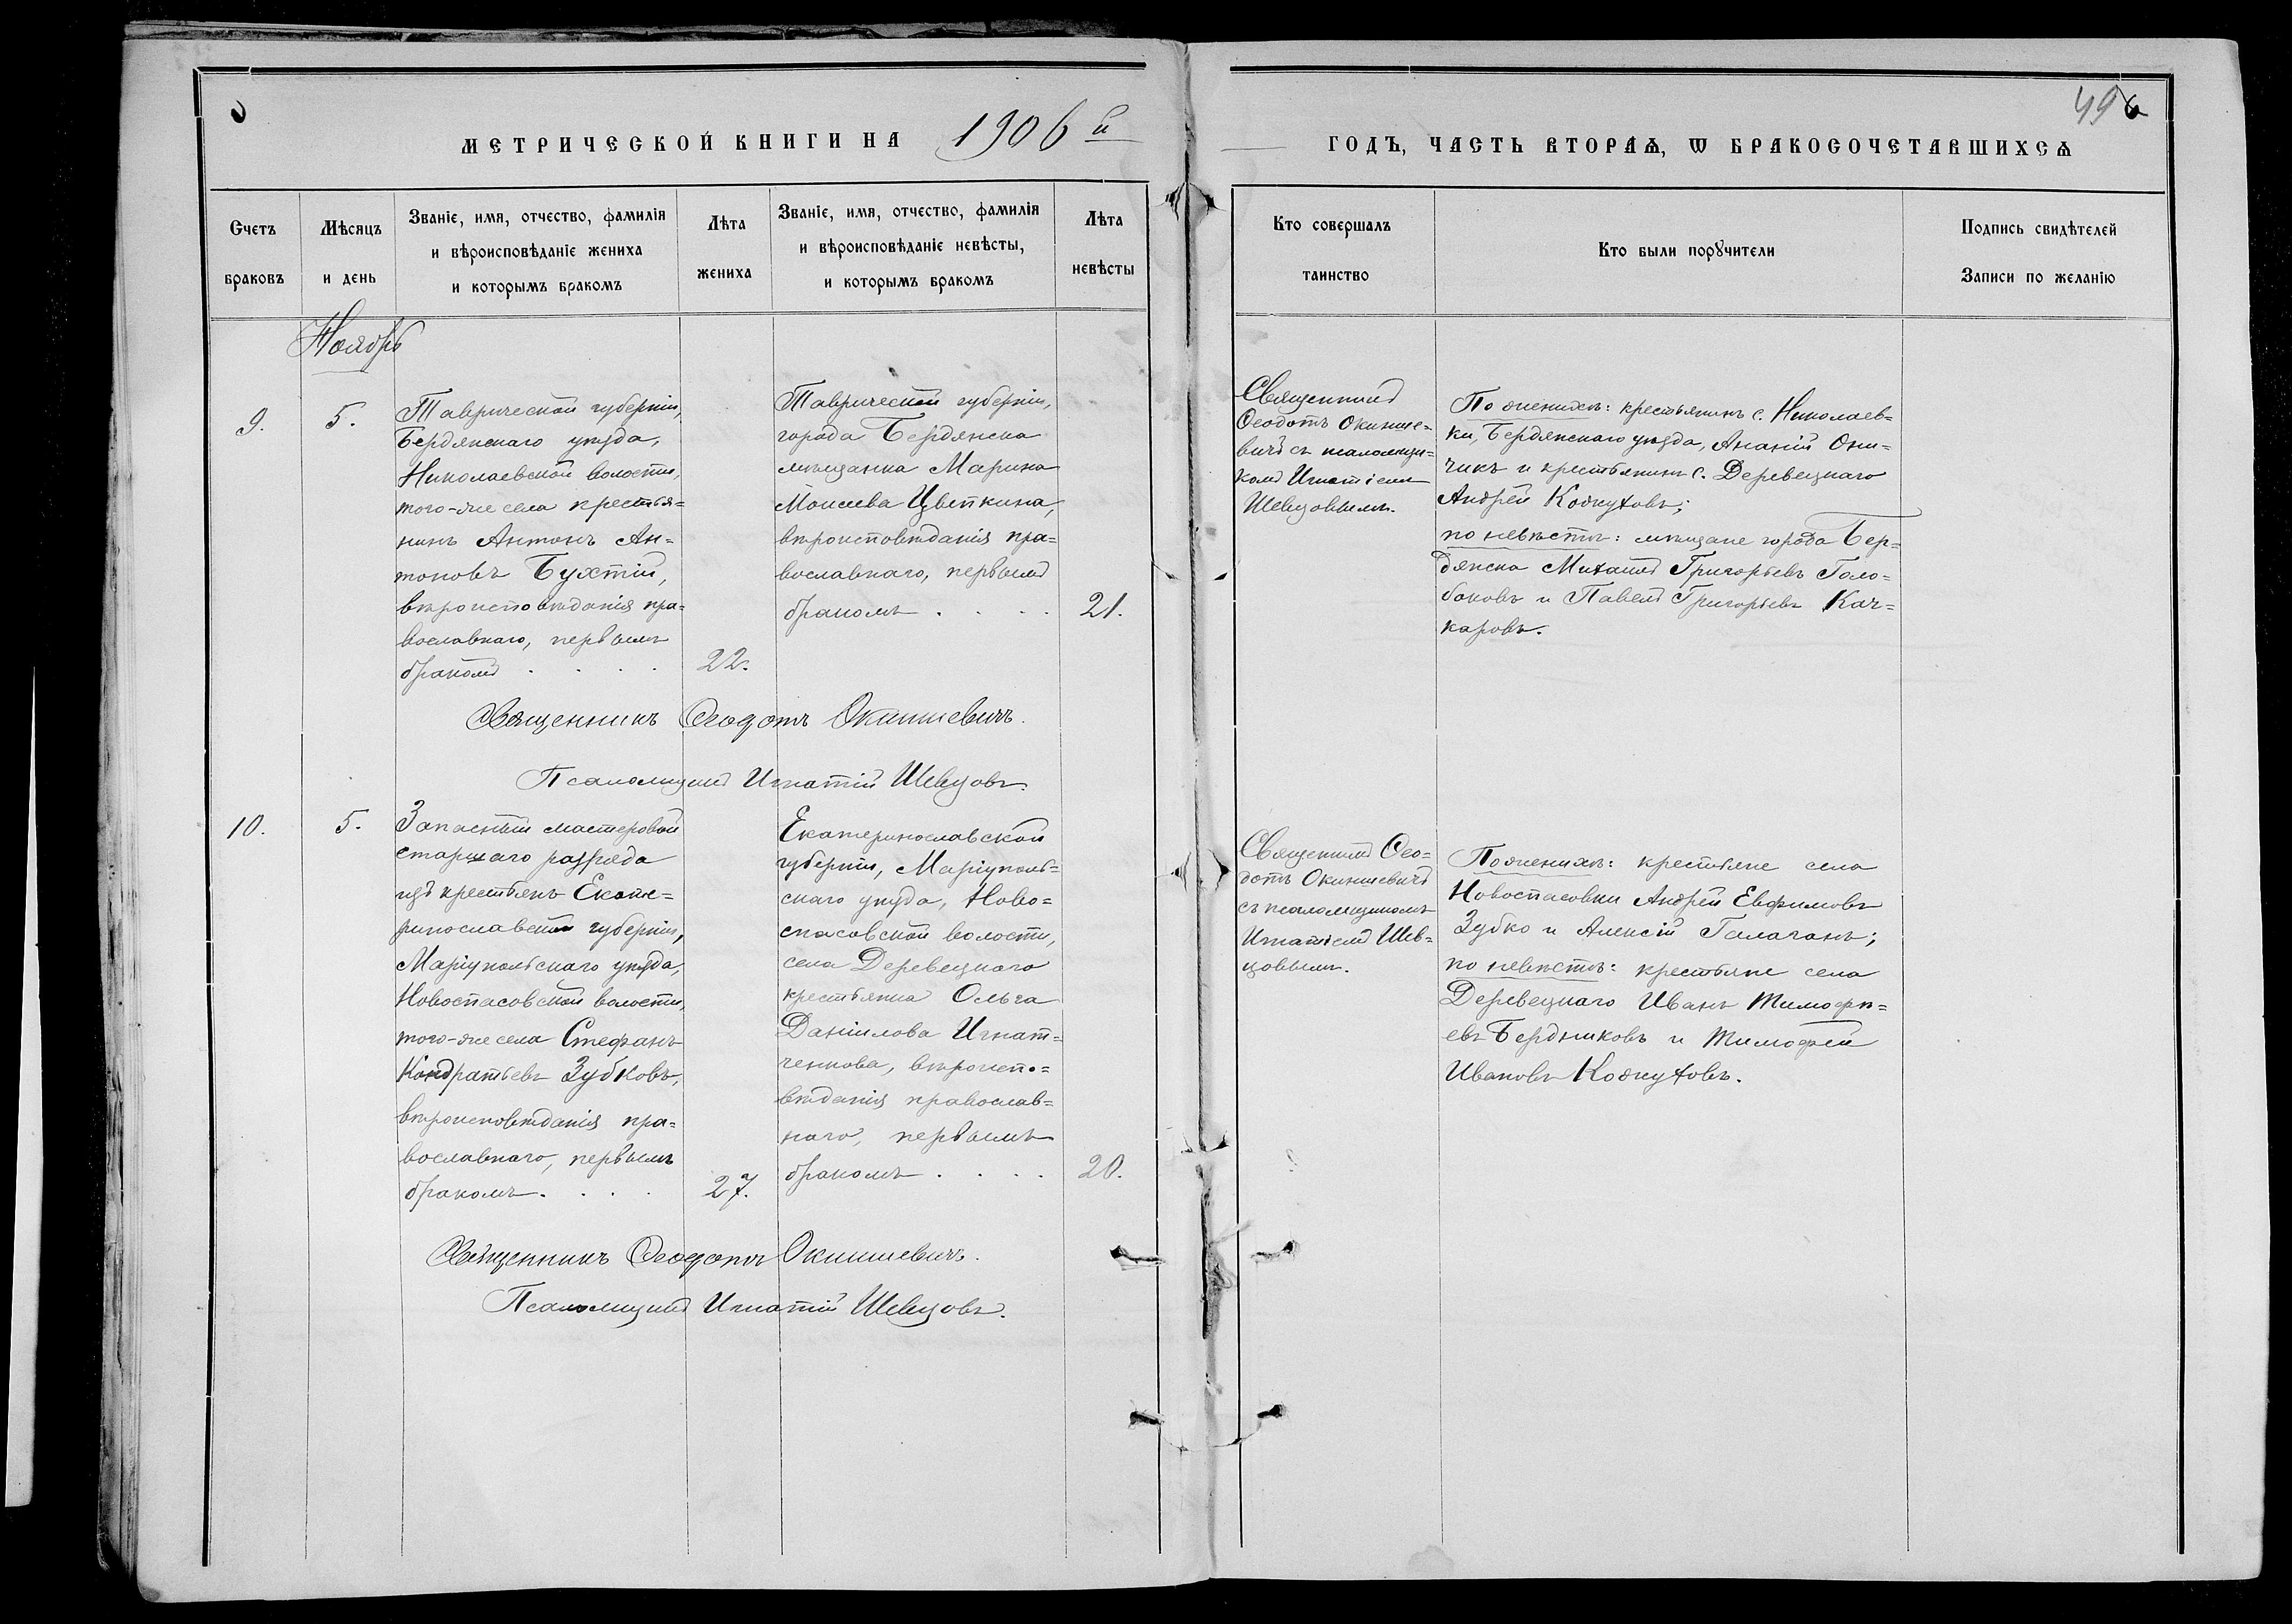 496
МЕТРИЧЕСКОЙ КНИГИ НА 1906й
ГОДЪ, ЧАСТЬ ВТОРАѦ, Ѡ БРАКОСОЧЕТАВШИХСѦ
Счетъ
браковъ
Мѣсяцъ
и день
Званіе, имя, отчество, фамилія
и вѣроисповѣданіе жениха
и которымъ бракомъ
Лѣта
жениха
Званіе, имя, отчество, фамилія
и вѣроисповѣданіе невѣсты,
и которымъ бракомъ
Лѣта
невѣсты
Кто совершалъ
таинство
Кто были порꙋчители
Подпись свидѣтелей
Записи по желанію
Ноябрь
9.
5.
Таврической губерніи,
Бердянскаго уѣзда,
Николаевской волости,
того-же села крестья=
нинъ Антонъ Ан=
тоновъ Бухтій,
вѣроисповѣданія пра=
вославнаго, первымъ
бракомъ . . . .
22.
Таврической губерніи,
города Бердянска
мѣщанка Марина
Моисеева Цвѣткина,
вѣроисповѣданія пра=
вославнаго, первымъ
бракомъ . . . .
21.
Священникъ
Ѳеодотъ Окинше=
вичъ съ псаломщи=
комъ Игнатіемъ
Шевцовымъ.
По женихѣ: крестьянинъ с. Николаев=
ки, Бердянскаго уѣзда, Ананій Они=
чикъ и крестьянинъ с. Деревецкаго
Андрей Кожуховъ;
по невѣстѣ: мѣщане города Бер=
дянска Михаилъ Григорьевъ Голо=
баковъ и Павелъ Григорьевъ Кач=
каровъ.
Священникъ Ѳеодотъ Окиншевичъ.
Псаломщикъ Игнатій Шевцовъ.
10.
5.
Запасный мастеровой
старшаго разряда
изъ крестьянъ Екате=
ринославской губерніи,
Маріупольскаго уѣзда,
Новоспасовской волости,
того-же села Стефанъ
Кондратьевъ Зубковъ,
вѣроисповѣданія пра=
вославнаго, первымъ
бракомъ. . . .
27.
Екатеринославской
губерніи, Маріуполь=
скаго уѣзда, Ново=
спасовской волости,
села Деревецкаго
крестьянка Ольга
Даніилова Игнат=
ченкова, вѣроиспо=
вѣданія православ=
наго, первымъ
бракомъ . . . .
20.
Священникъ Ѳео=
дотъ Окиншевичъ
съ псаломщикомъ
Игнатіемъ Шев=
цовымъ.
По женихѣ: крестьяне села
Новоспасовки Андрей Евфимовъ
Зубко и Алексій Галаганъ;
по невѣстѣ: крестьяне села
Деревецкаго Иванъ Тимофѣ=
евъ Бердниковъ и Тимофей
Ивановъ Кожуховъ.
Священникъ Ѳеодотъ Окиншевичъ.
Псаломщикъ Игнатій Шевцовъ.